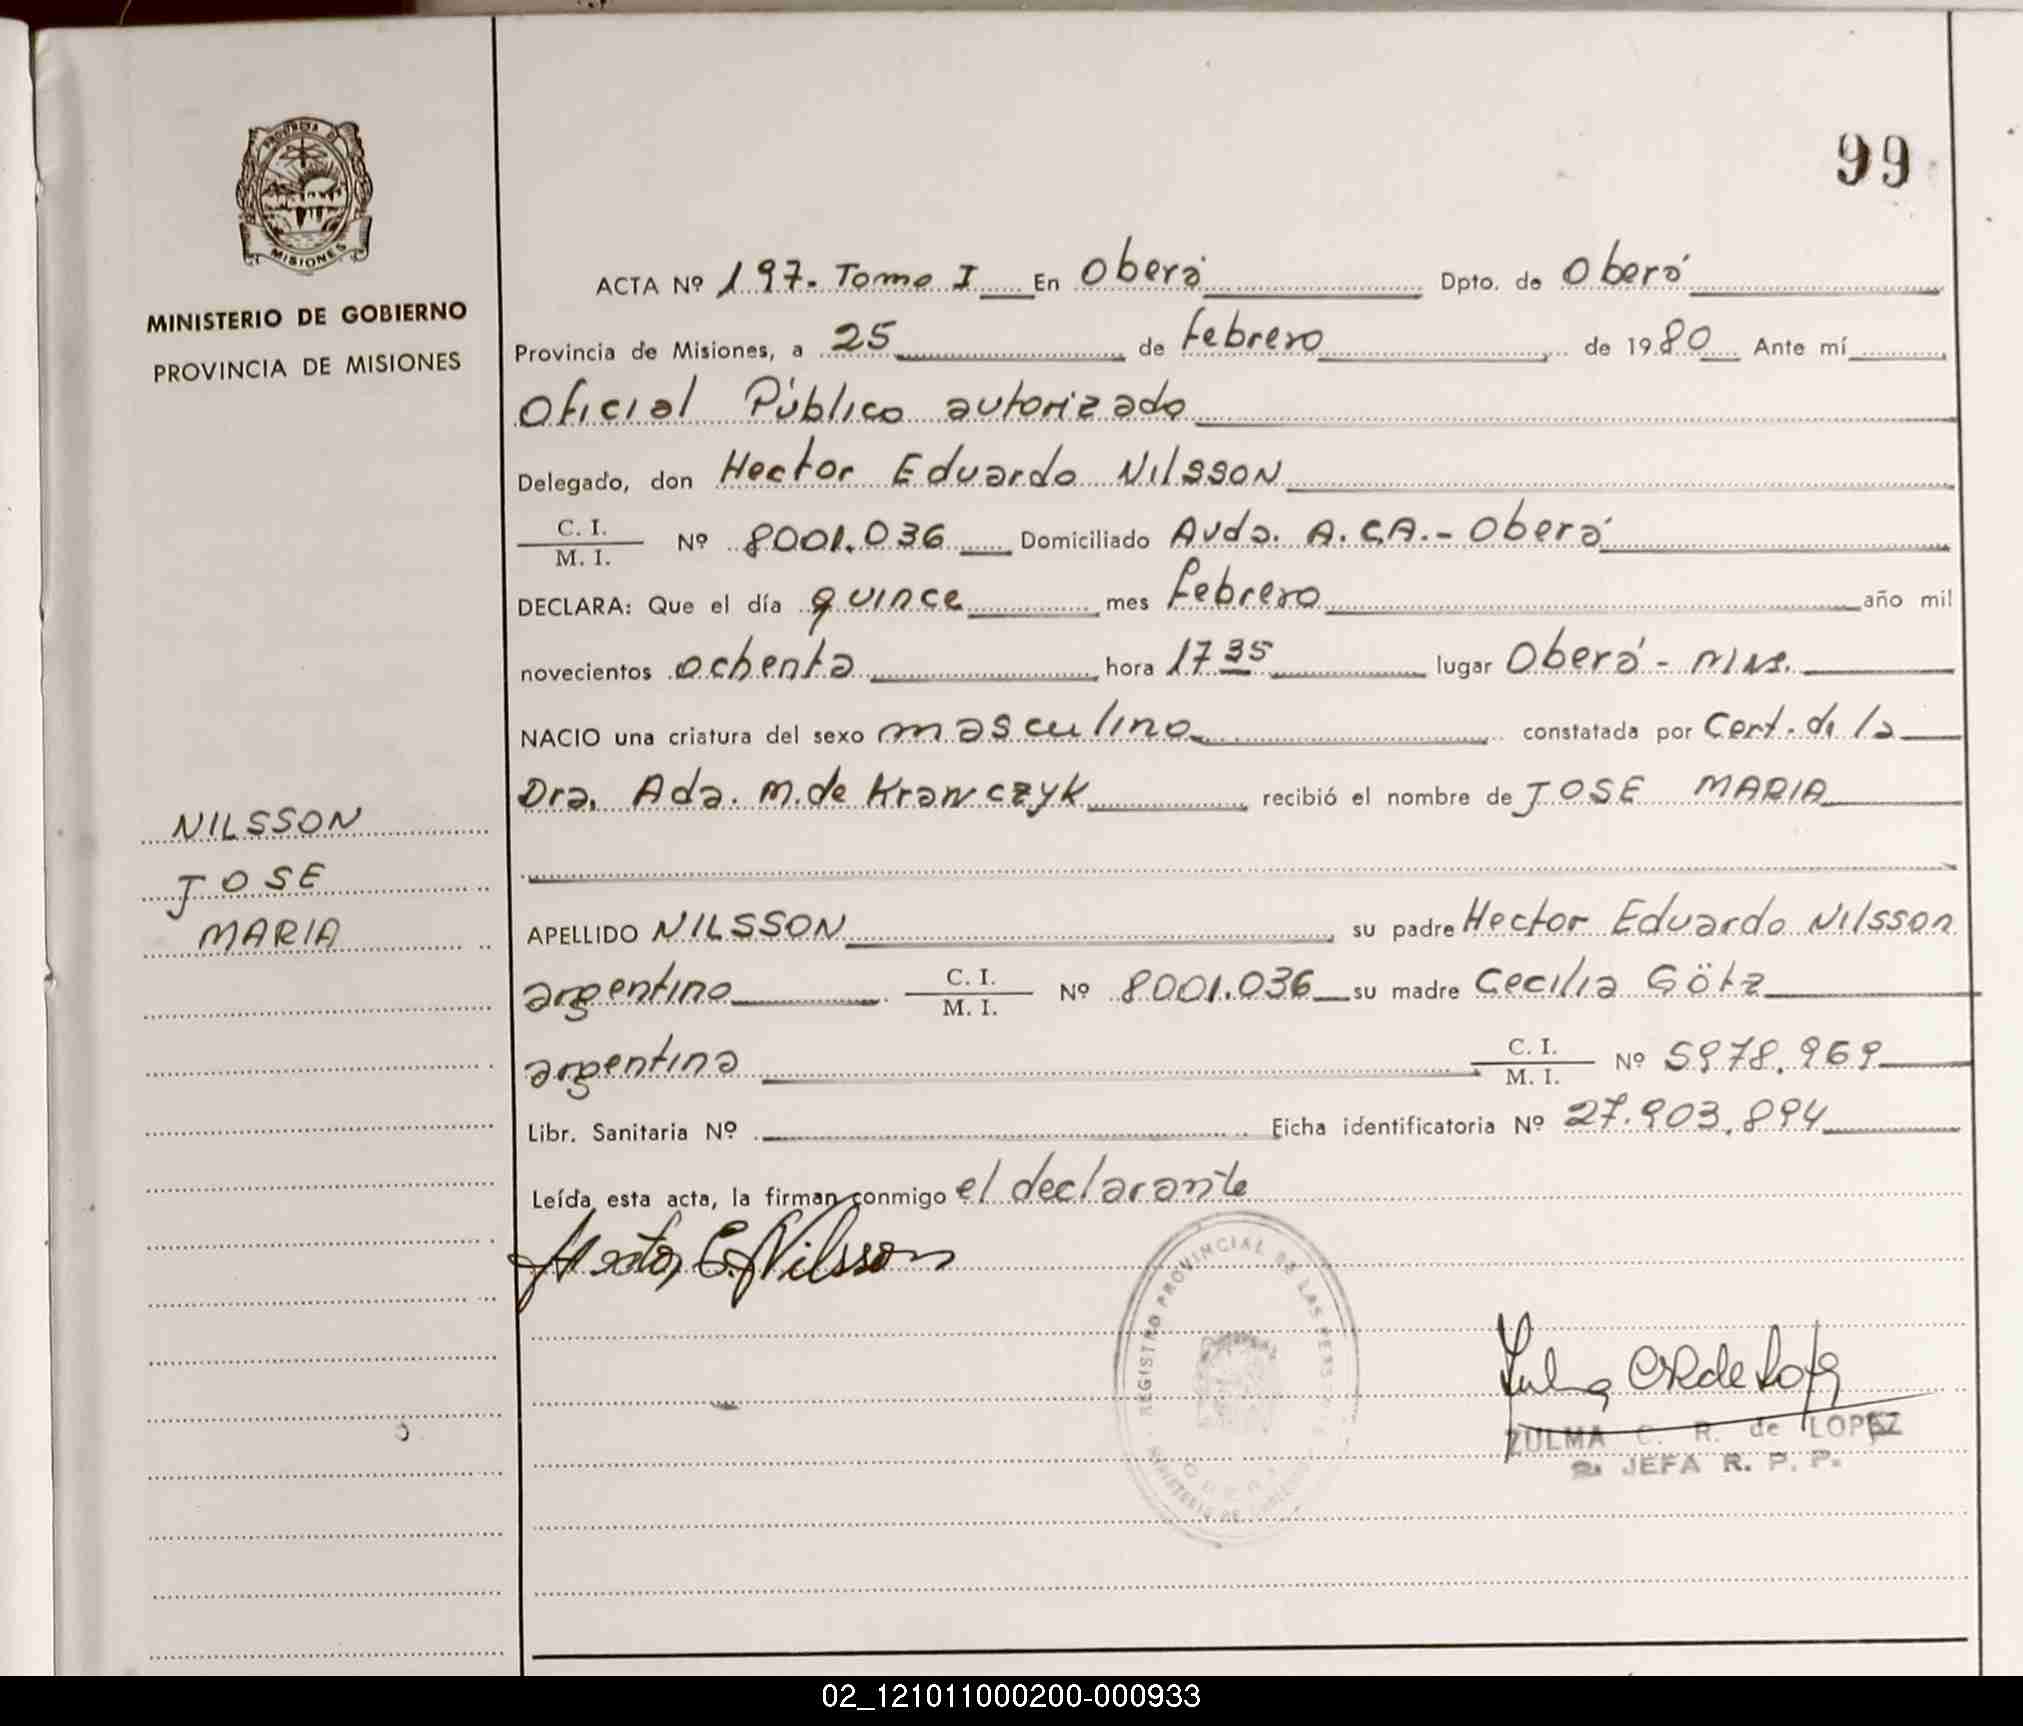 99
PROVINCIA DE
MISIONES
MINISTERIO DE GOBIERNO
PROVINCIA DE MISIONES
NILSSON
JOSE
MARIA
ACTA Nº 197. Tomo I En Oberá Dpto. de Oberá
Provincia de Misiones, a 25 de febrero de 1980 Ante mí
Oficial Público autorizado
Delegado, don Hector Eduardo Nilsson
C. I.
M. I. Nº 8001.036 Domiciliado Avda. A.C.A.- Oberá
DECLARA: Que el día quince mes febrero año mil
novecientos ochenta hora 17 35 lugar Oberá - Mns.
NACIO una criatura del sexo masculino constatada por Cert. de la
Dra. Ada. M. de Krawczyk recibió el nombre de JOSE MARIA
APELLIDO NILSSON su padre Hector Eduardo Nilsson
argentino C. I.
M. I. Nº 8001.036 su madre Cecilia Götz
argentina C. I.
M. I. Nº 5978.969
Libr. Sanitaria Nº Ficha identificatoria Nº 27.903.894
Leída esta acta, la firman conmigo el declarante
Hector E. Nilsson
REGISTRO PROVINCIAL DE LAS PERS
MINISTERIO DE GOBIERNO
Zulma CR de Lopez
ZULMA C. R. de LOPEZ
JEFA R. P. P.
02_121011000200-000933